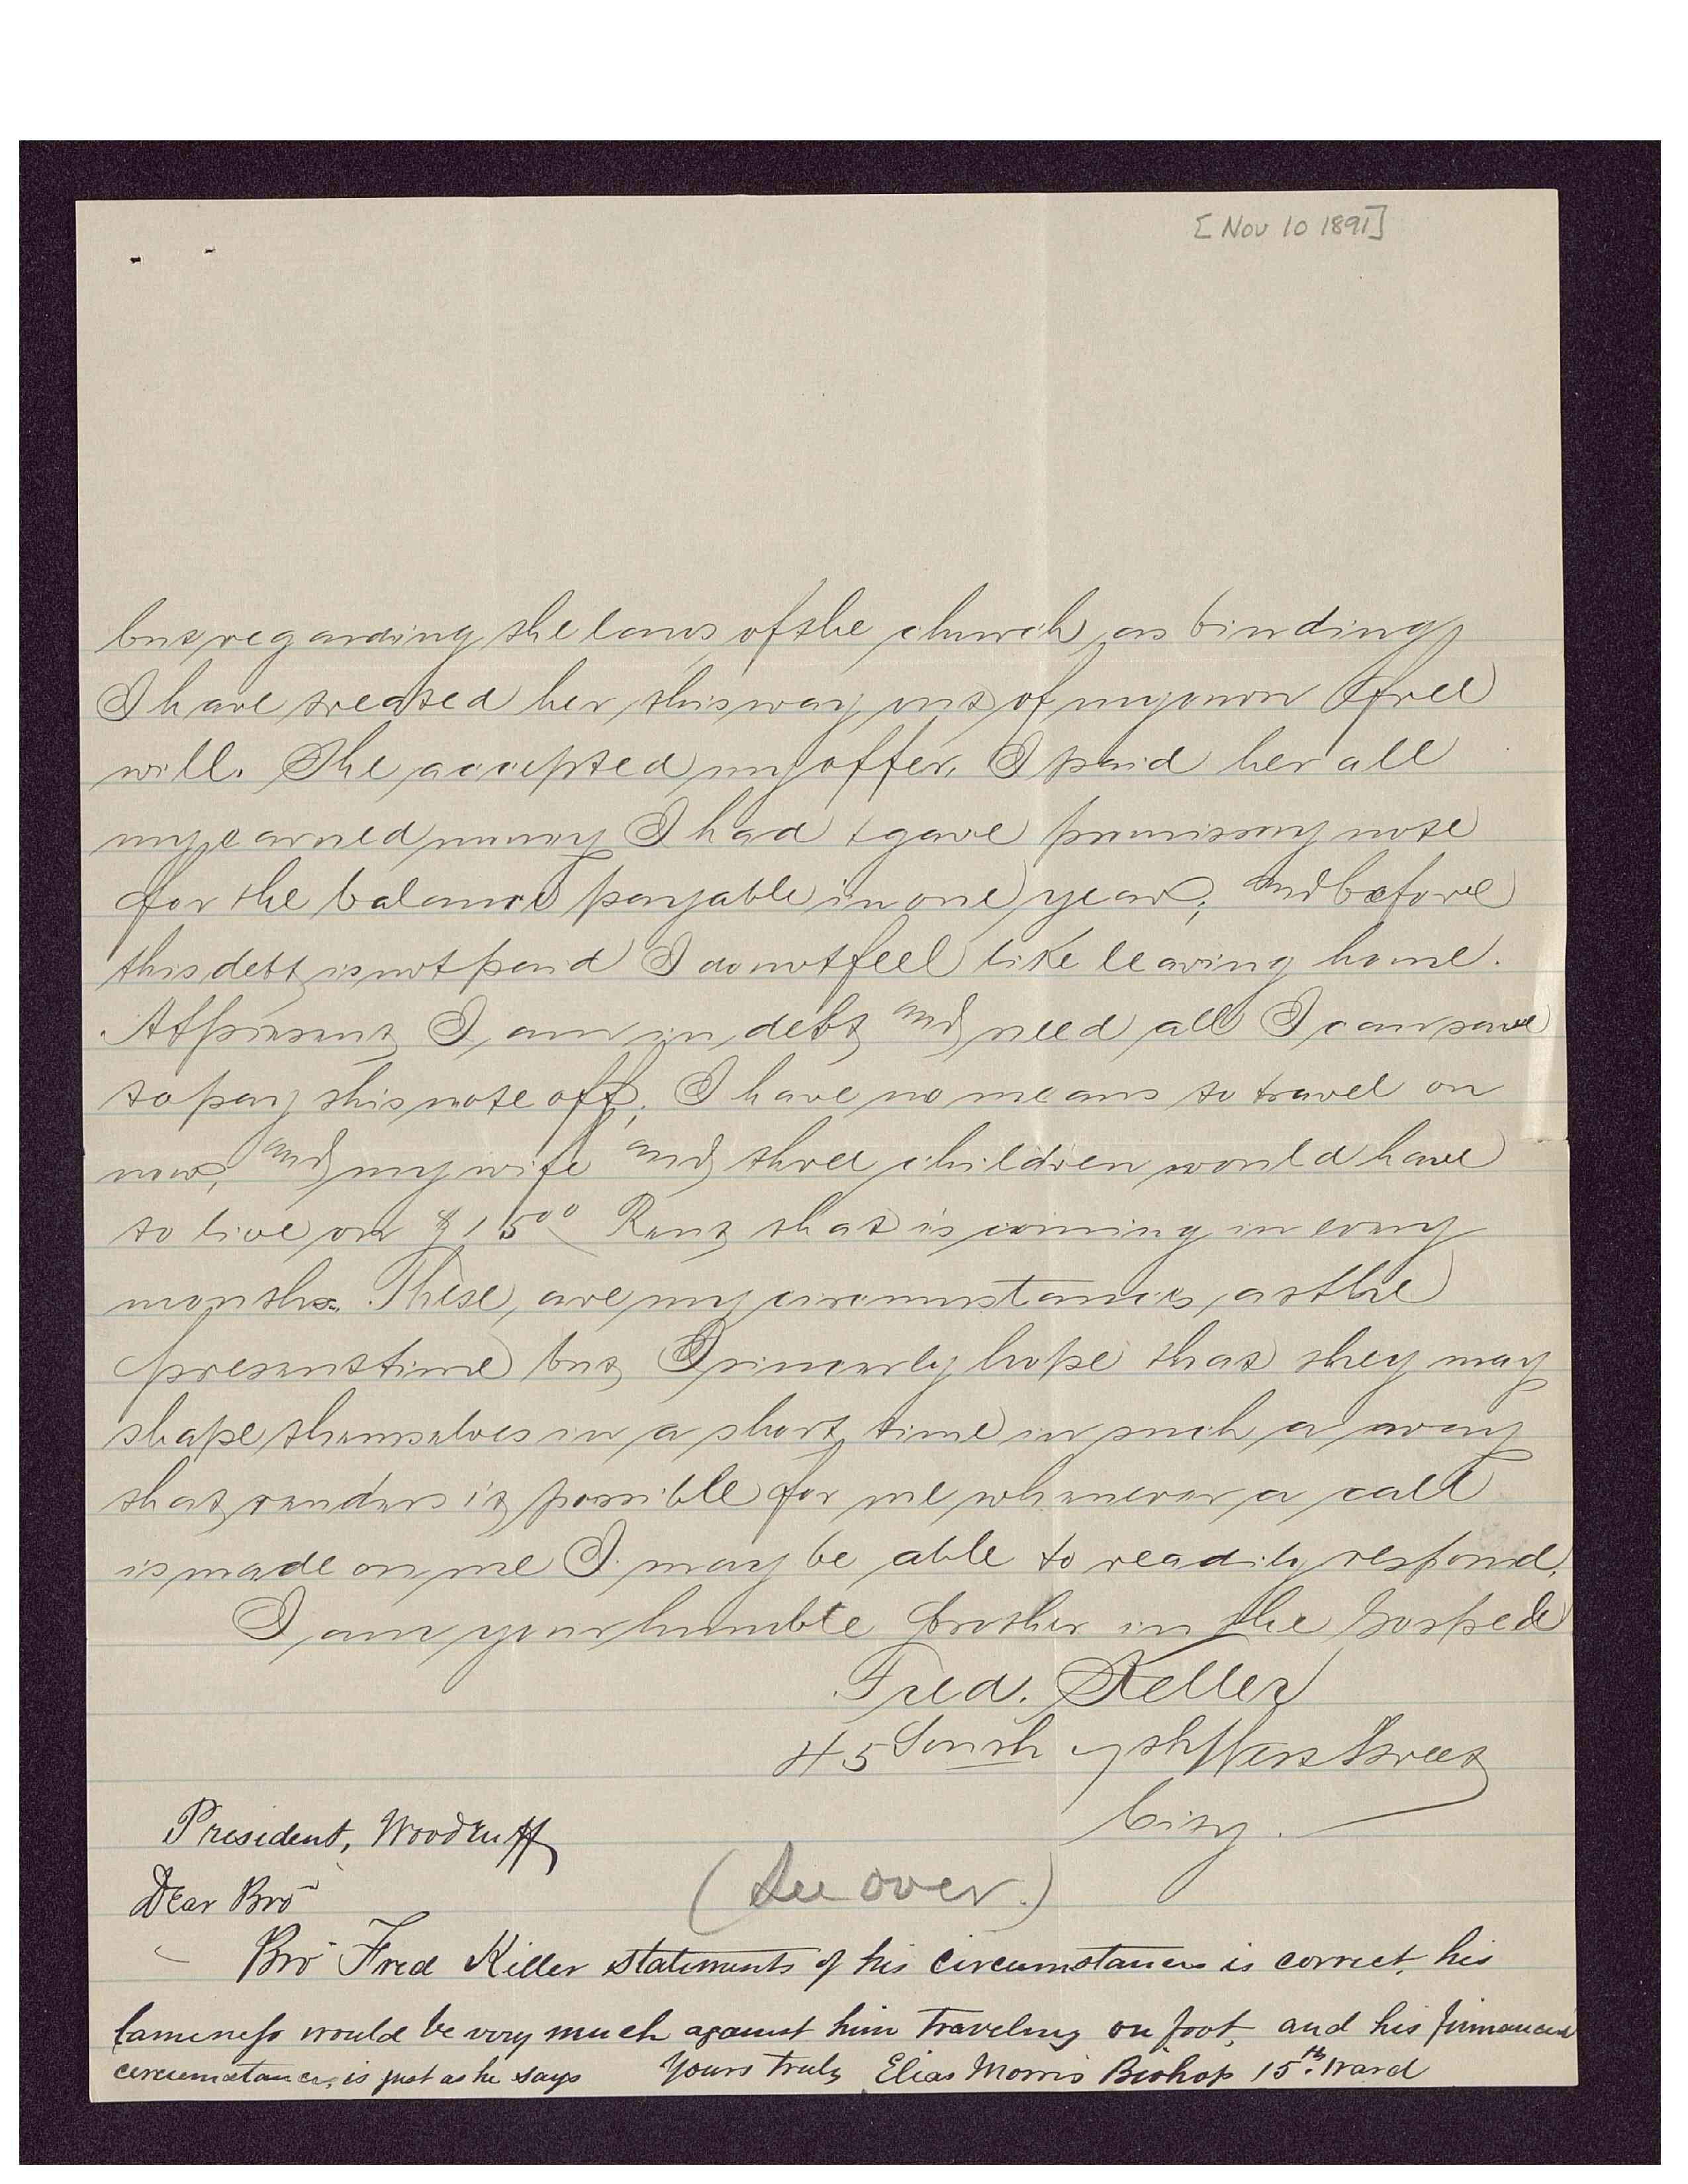 [Nov 10 1891]
but regarding the laws of the church as binding
I have treated her this way out of my own free
will. She accepted my offer, I paid her all
my earned money I had & gave promissory note
for the balance payable in one year; and before
this debt is not paid I do not feel like leaving home.
At present I am in debt and need all I can save
to pay this note off, I have no means to travel on
now, and my wife and three children would have
to live on $15.00 Rent that is coming in every
month. These are my circumstances at the
present time but I sincerely hope that they may
shape themselves in a short time in such a way
that renders it possible for me whenever a call
is made on me I may be able to readily respond.
I am your humble brother in the Gospel
Fred. Keller
45 South 7th West Street
City.
President, Woodruff
Dear Bro
(See over.)
Bro Fred Killer statements of his circumstances is correct, his
lameness would be very much against him traveling on foot, and his finnancial
circumstances, is just as he says Yours truly Elias Morris Bishop 15th. Ward